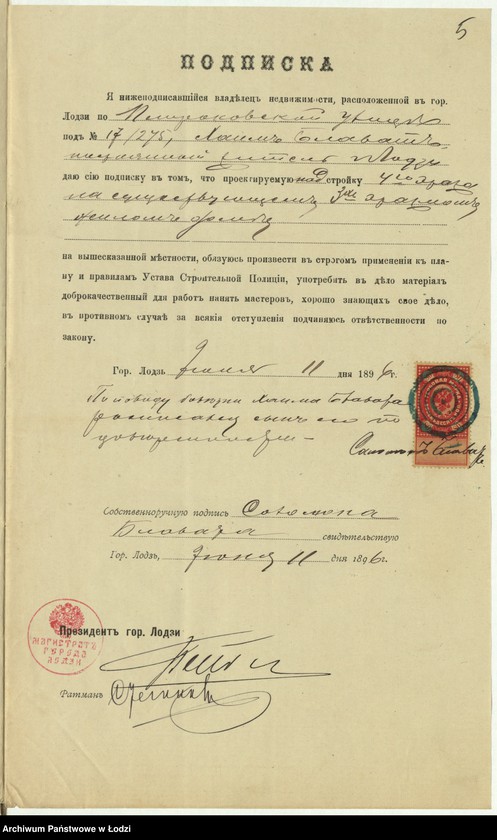 5
ПОДПИСКА
Я нижеподписавшійся владѣлецъ недвижимости, расположенной въ гор.
Лодзи по Петроковской улицѣ
подъ № 17/275, Хаимъ Бловатъ
житель г. Лодзи
даю сію подписку въ томъ, что проектируемую надстройку 4го этажа
на существующемъ 3хъ этажномъ
жиломъ домѣ
на вышесказанной мѣстности, обязуюсь произвести въ строгомъ примѣненіи къ пла-
ну и правиламъ Устава Строительной Полиціи, употребить въ дѣло матеріалъ
доброкачественный для работъ нанять мастеровъ, хорошо знающихъ свое дѣло,
въ противномъ случаѣ за всякія отступленія подчиняюсь отвѣтственности по
закону.
Гор. Лодзь Іюня 11 дня 1896 г.
По поводу Хаима Бловата
сынъ его по
Бловатъ
Собственноручную подпись Соломона
Бловата свидѣтельствую
Гор. Лодзь, Іюня 11 дня 1896 г.
Президентъ гор. Лодзи
МАГИСТРАТЪ
ГОРОДА
ЛОДЗИ
Ратманъ
Archiwum Państwowe w Łodzi